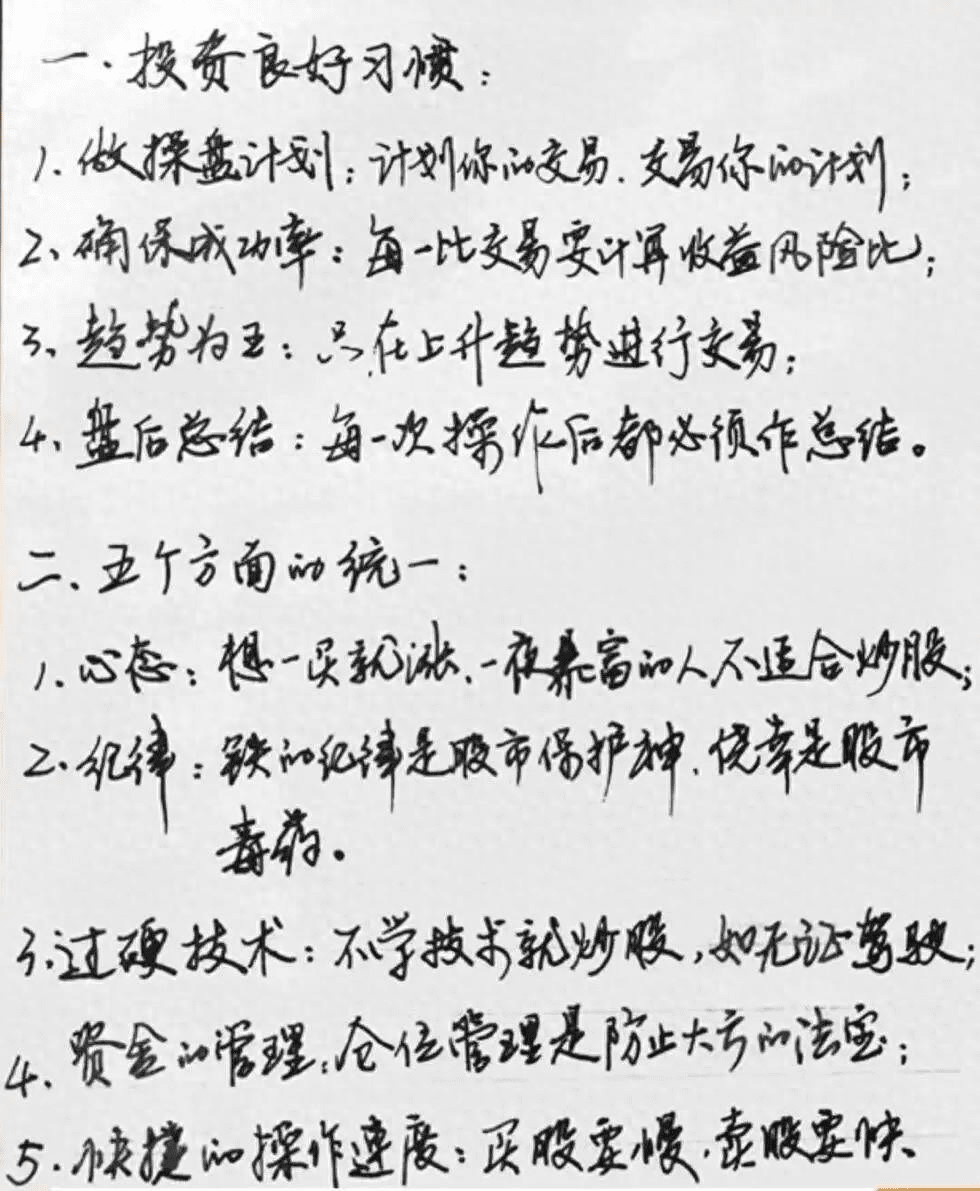 一、投资良好习惯：
1、做操盘计划：计划你的交易、交易你的计划；
2、确保成功率：每一比交易要计算收益风险比；
3、趋势为王：只在上升趋势进行交易；
4、盘后总结：每一次操作后都必须作总结。
二、五个方面的统一：
1、心态：想一买就涨、一夜暴富的人不适合炒股；
2、纪律：铁的纪律是股市保护神、侥幸是股市
毒药。
3、过硬技术：不学技术就炒股，如无证驾驶；
4、资金的管理：仓位管理是防止大亏的法宝；
5、快捷的操作速度：买股要慢、卖股要快。